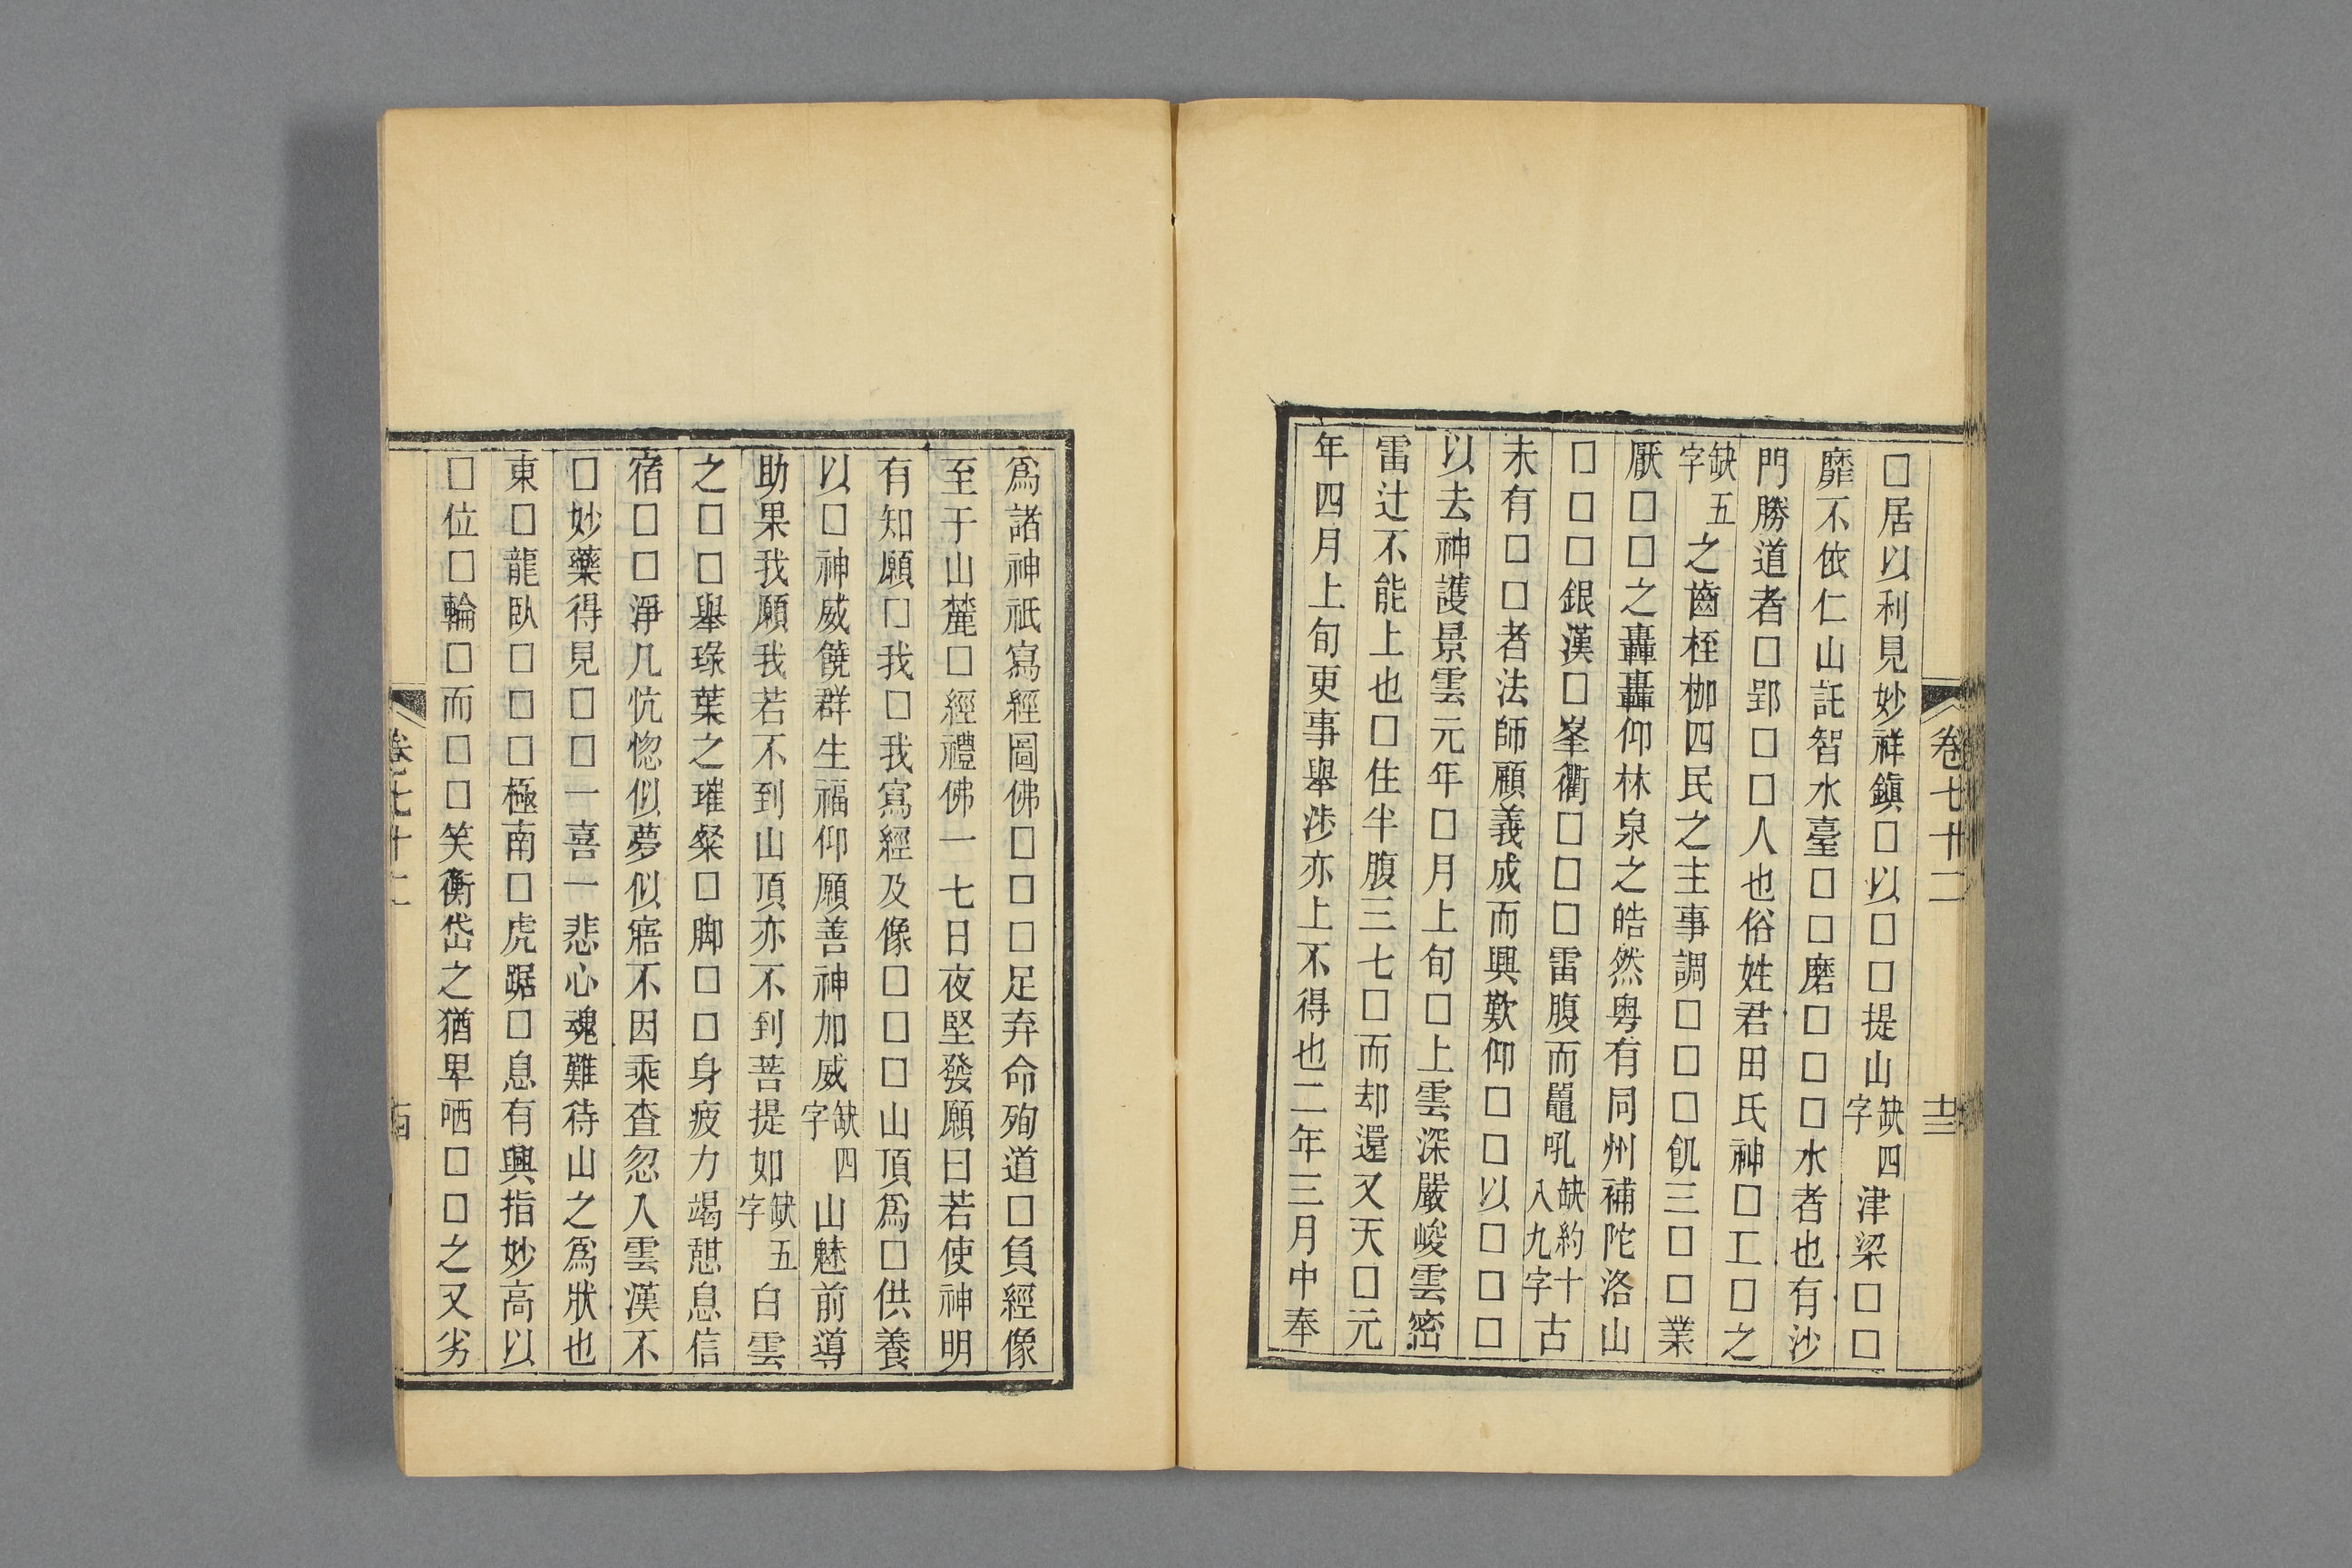 卷七十二
十三
□居以利見妙祥鎭□以□□提山缺四字津梁□□
靡不依仁山託智水臺□□磨□□□水者也有沙
門勝道者□郢□□人也俗姓君田氏神□工□之
缺五字之齒桎枷四民之主事調□□□飢三□□業
厭□□之轟轟仰林泉之皓然粤有同州補陀洛山
□□□銀漢□峯衢□□□雷腹而鼉吼缺約十八九字古
未有□□者法師顧義成而興歎仰□□以□□□
以去神護景雲元年□月上旬□上雲深嚴峻雲密
雷辻不能上也□住半腹三七□而却還又天□元
年四月上旬更事舉涉亦上不得也二年三月中奉
爲諸神祇寫經圖佛□□□足弃命殉道□負經像
至于山麓□經禮佛一七日夜堅發願曰若使神明
有知願□我□我寫經及像□□□山頂爲□供養
以□神威饒群生福仰願善神加威缺四字山魅前導
助果我願我若不到山頂亦不到菩提如缺五字白雲
之□□舉琭葉之璀粲□脚□□身疲力竭憇息信
宿□□淨几忼惚似夢似寤不因乘査忽入雲漢不
□妙藥得見□□一喜一悲心魂難待山之爲狀也
東□龍臥□□□極南□虎踞□息有興指妙高以
□位□輪□而□□笑衡岱之猶卑哂□□之又劣